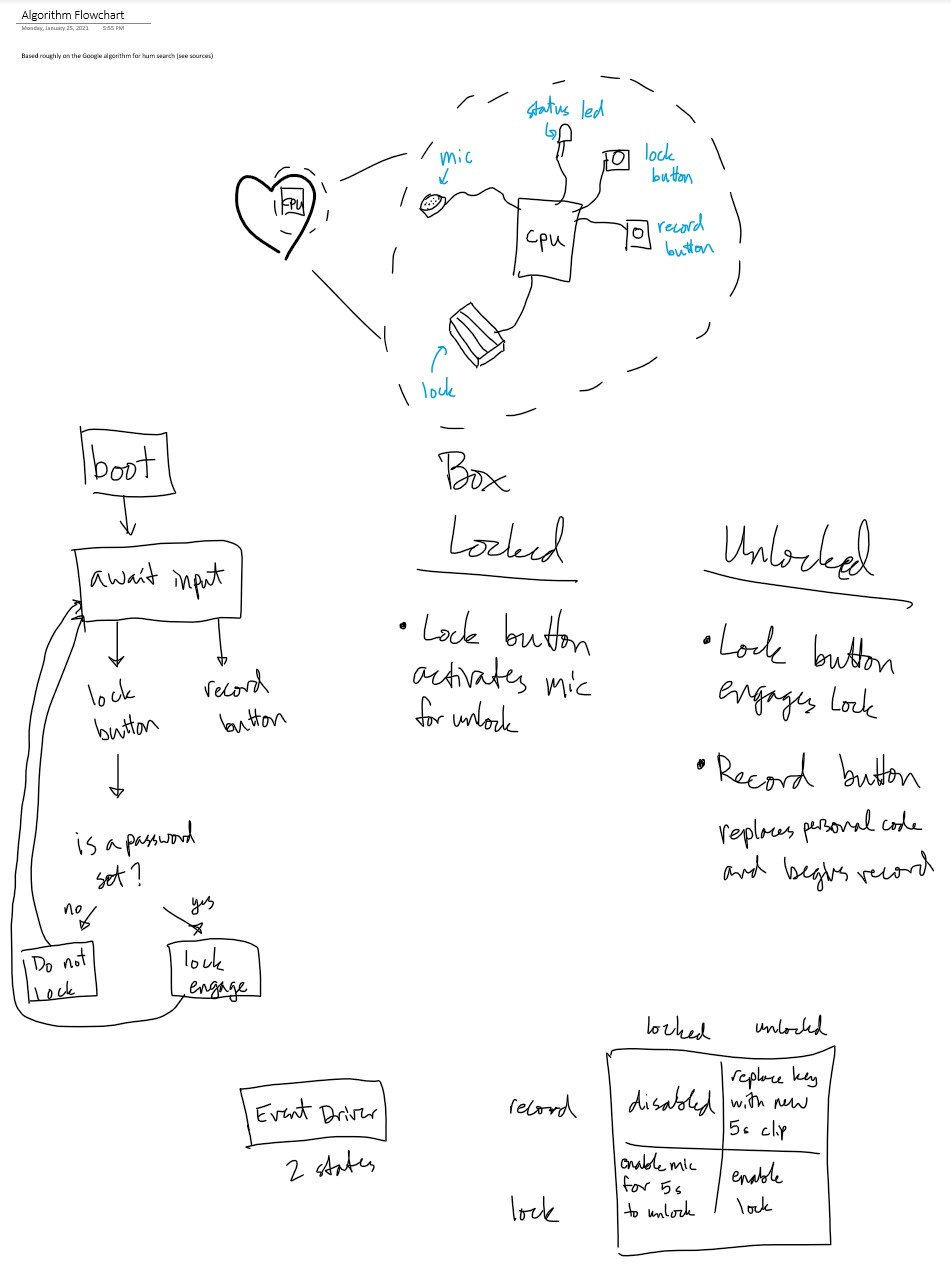 Algorithm Flowchart
Monday, January 25, 2021 5:55 PM
Based roughly on the Google algorithm for hum search (see sources)
status led
mic
lock
button
cpu
cpu
record
button
lock
boot
await input
lock
button
record
button
is a password
set?
no
yes
Do not
lock
lock
engage
Box
Locked
• Lock button
activates mic
for unlock
Unlocked
• Lock button
engages Lock
• Record button
replaces personal code
and begins record
Event Driver
2 states
locked unlocked
record
disabled
replace key
with new
5s clip
lock
enable mic
for 5s
to unlock
enable
lock